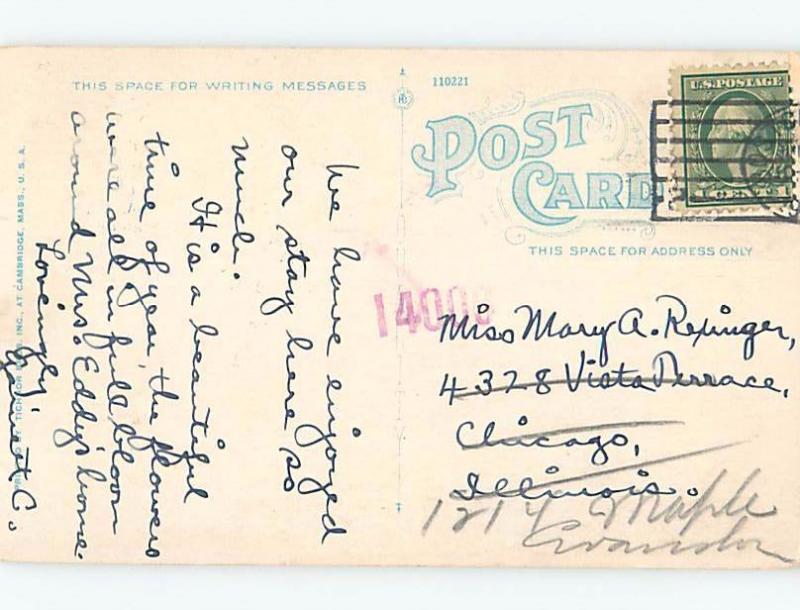 THIS SPACE FOR WRITING MESSAGES
110221
POST
CARD
U.S. POSTAGE
THIS SPACE FOR ADDRESS ONLY
14000
We have enjoyed
our stay here so
much.
It is a beautiful
time of year, the flowers
were all in full bloom
around Mrs. Eddy's home.
Lovingly
C.
Miss Mary A. Repinger,
4328 Vista Terrace,
Chicago,
Illinois.
1214 Maple
Evanston
BY TICHNOR INC., AT CAMBRIDGE, MASS., U. S. A.